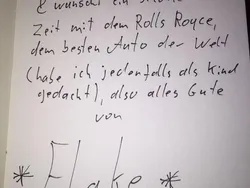 wünscht ein
Zeit mit dem Rolls Royce,
dem besten Auto der Welt
(habe ich jedenfalls als Kind
gedacht), also alles Gute
von
* Flake *